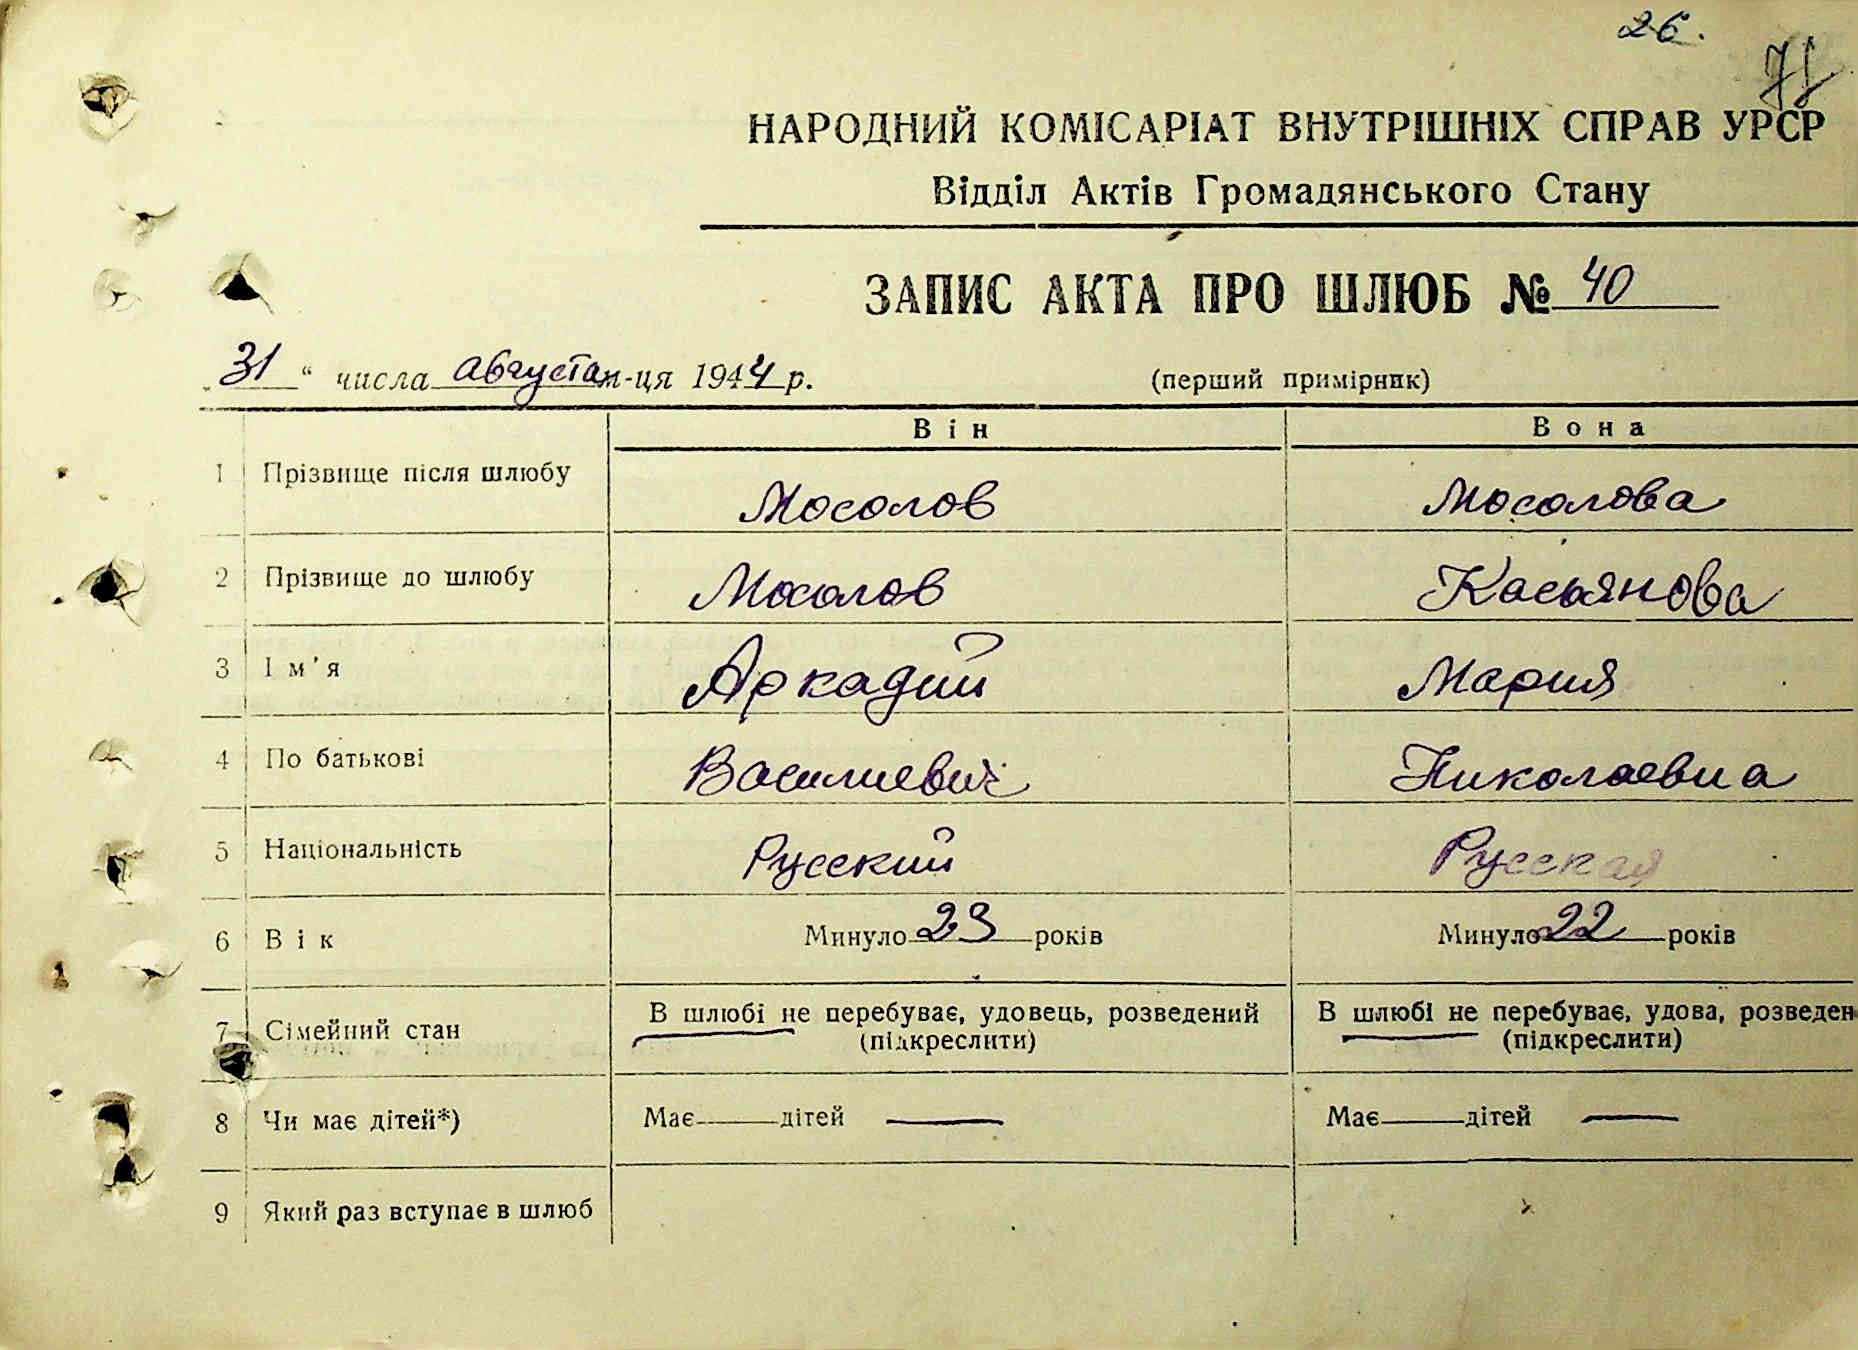 26.
71
НАРОДНИЙ КОМІСАРІАТ ВНУТРІШНІХ СПРАВ УРСР
Відділ Актів Громадянського Стану
ЗАПИС АКТА ПРО ШЛЮБ № 40
„31“ числа августа м-ця 1944 р. (перший примірник)
Він Вона
1 Прізвище після шлюбу Мосолов Мосолова
2 Прізвище до шлюбу Мосолов Касьянова
3 Ім’я Аркадий Мария
4 По батькові Василиевич Николаевна
5 Національність Русский Русская
6 Вік Минуло 23 років Минуло 22 років
7 Сімейний стан В шлюбі не перебуває, удовець, розведений В шлюбі не перебуває, удова, розведен
(підкреслити) (підкреслити)
8 Чи має дітей*) Має — дітей — Має — дітей —
9 Який раз вступає в шлюб